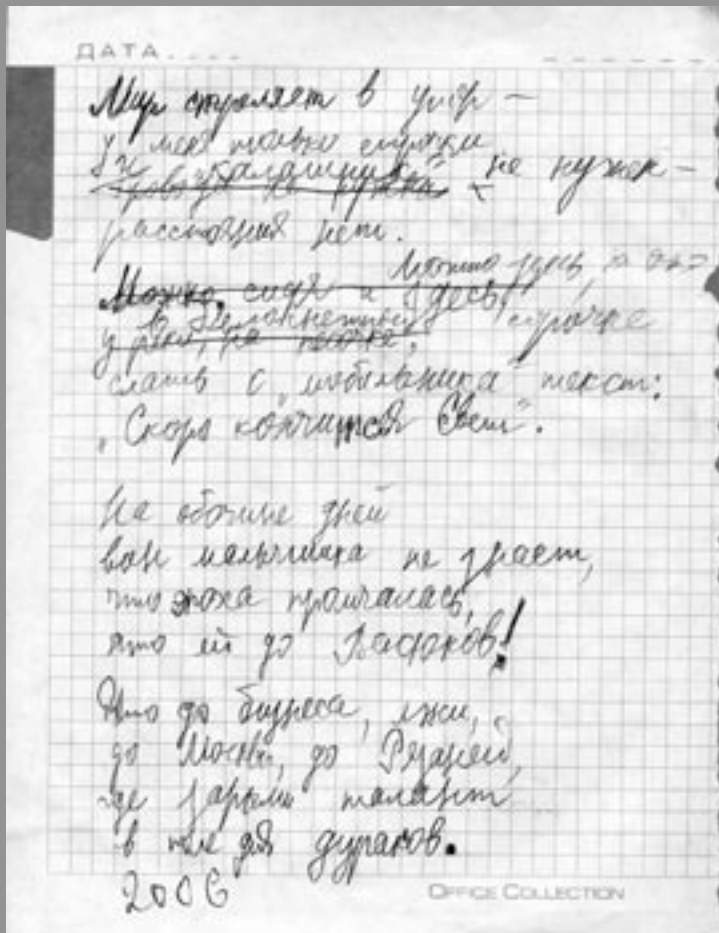 ДАТА
Мир стреляет в упор —
у меня только строчки
и „калашников“ не нужен —
расстояния нет.
Можно здесь,
Можно, сидя и здесь,
в белоснежную строчке
у реки, на
слать с „мобильника“ текст:
„Скоро кончится Свет“.
На обочине дней
вон мальчишка не знает,
что эпоха промчалась,
что ей до Васюков!
Что до бизнеса, лжи,
до Москвы, до Рязаней,
где зарыли талант
в поле для дураков.
2006
OFFICE COLLECTION